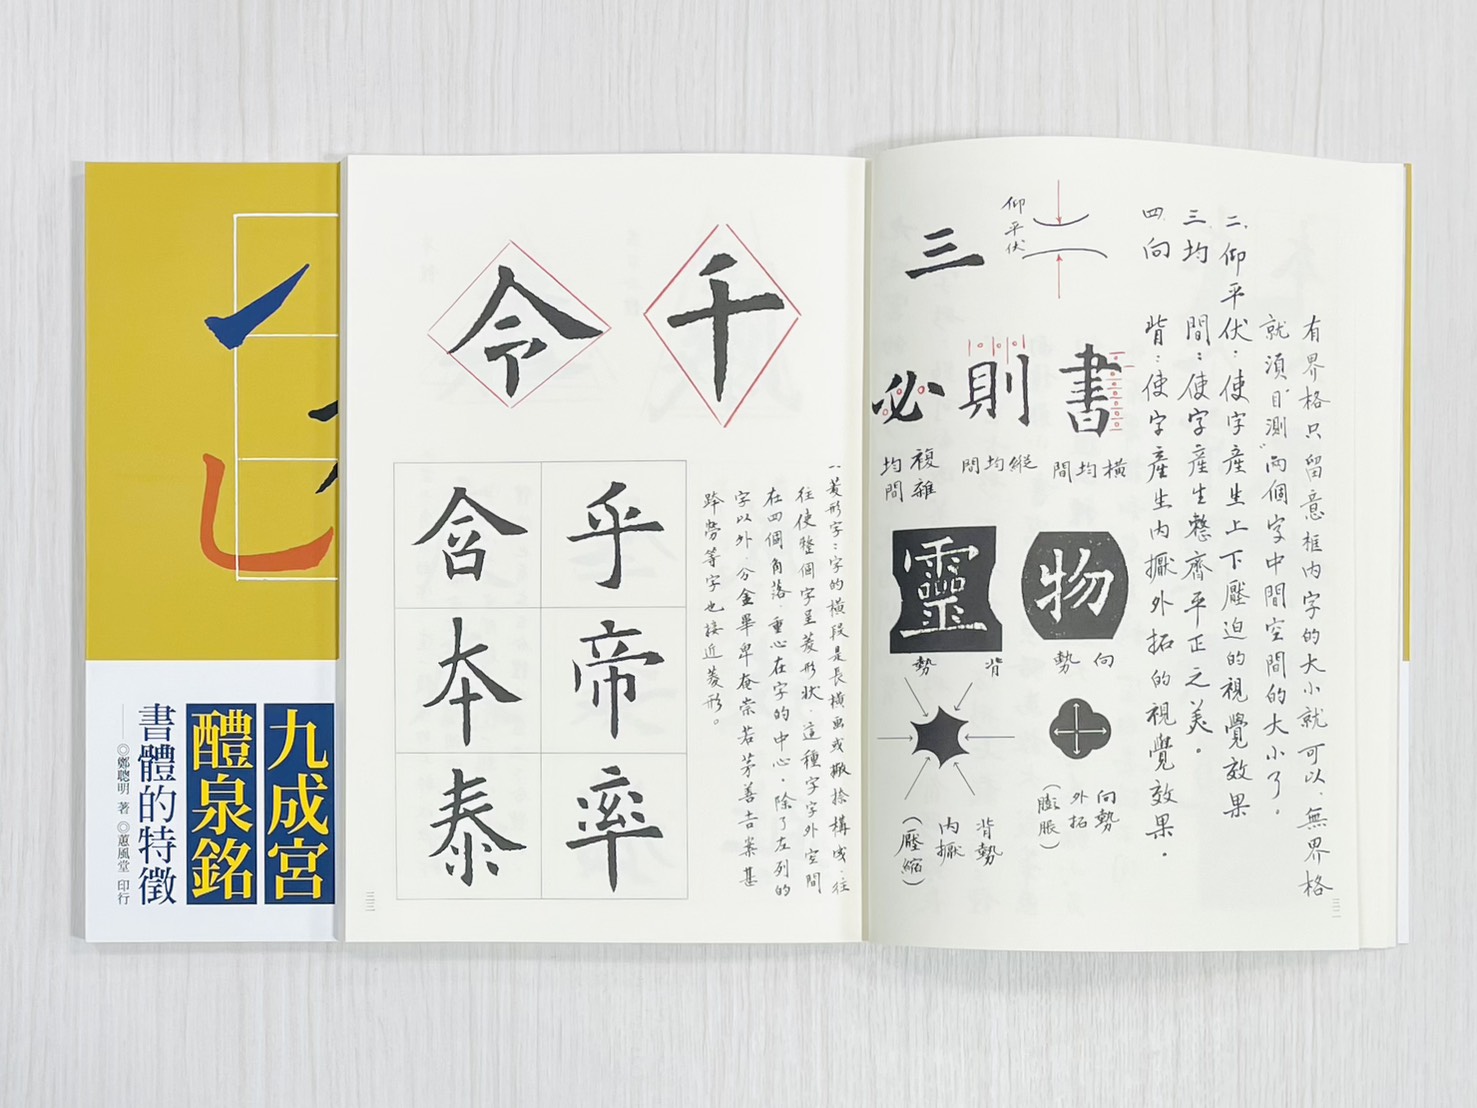 九成宮
醴泉銘
書體的特徵
◎鄭聰明 著 ◎蕙風堂 印行
有界格只留意框内字的大小就可以．無界格
就須"目測"兩個字中間空間的大小了。
二．仰平伏：使字產生上下壓迫的視覺效果
三．均間：使字產生整齊平正之美。
四．向背：使字產生内擫外拓的視覺效果。
仰平伏
三
書
則
必
橫均間
縱均間
複雜均間
物
靈
向勢
背勢
向勢
外拓
(膨脹)
背勢
内擫
(壓縮)
三二
千
令
一．菱形字：字的橫段是長橫畫或撇捺構成．往
往使整個字呈菱形狀．這種字字外空間
在四個角落．重心在字的中心。除了左列的
字以外．分金畢卑奄崇若茅善吉案甚
跨勞等字也接近菱形。
乎
帝
率
含
本
泰
三三